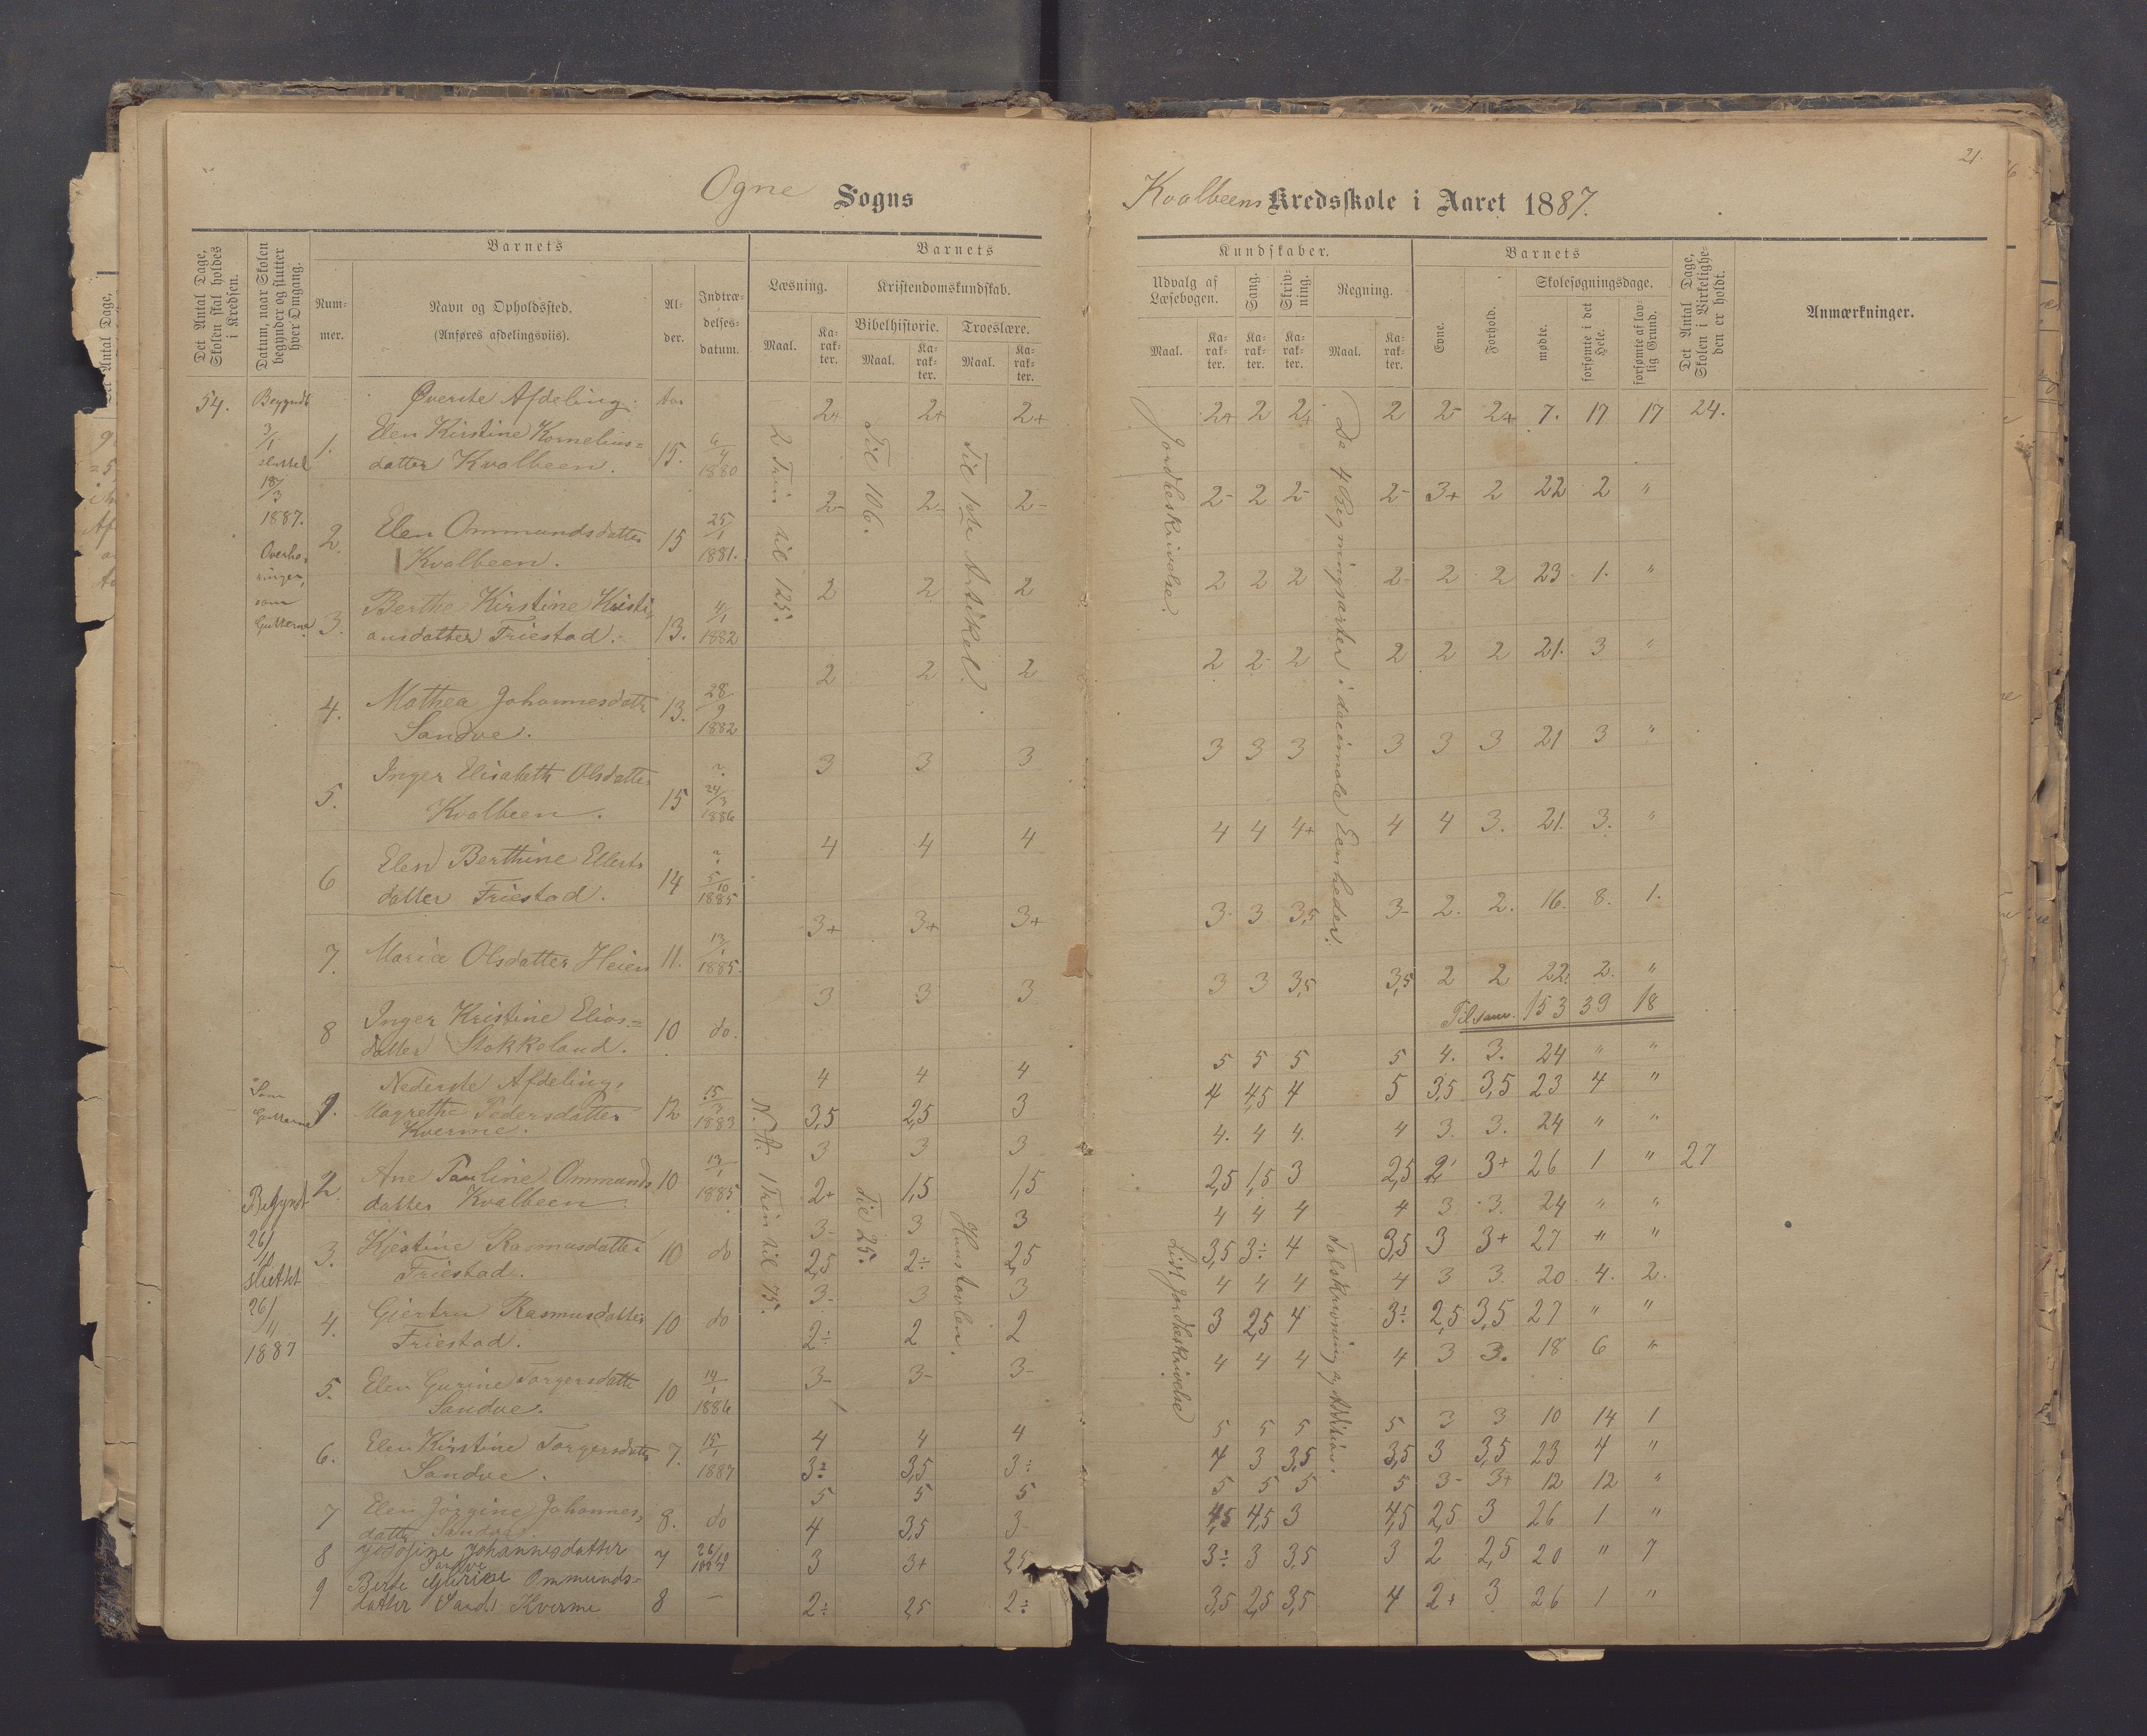 21.
Ogne Sogns
Kvalbeens Kredsskole i Aaret 1887.
Det Antal Dage, Skolen skal holdes i Kredsen.
Datum, naar Skolen begynder og slutter hver Omgang.
Barnets
Num-
mer.
Navn og Opholdssted.
(Anføres afdelingsviis).
Al-
der.
Indtræ-
delses-
datum.
Barnets
Læsning.
Kristendomskundskab.
Bibelhistorie.
Troeslære.
Maal.
Ka-
rak-
ter.
Maal.
Ka-
rak-
ter.
Maal.
Ka-
rak-
ter.
Kundskaber.
Udvalg af
Læsebogen.
Sang.
Skriv-
ning.
Regning.
Maal.
Ka-
rak-
ter.
Ka-
rak-
ter.
Ka-
rak-
ter.
Maal.
Ka-
rak-
ter.
Barnets
Evne.
Forhold.
Skolesøgningsdage.
mødte.
forsømte i det Hele.
forsømte af lov-
lig Grund.
Det Antal Dage, Skolen i Virkelighe-
den er holdt.
Anmærkninger.
54.
Begyndt
3/1
sluttet
18/3
1887.
Overhø-
ringen,
som
Gutterne
Øverste Afdeling.
Aar
1. Elen Kirstine Kornelius=
datter Kvalbeen. 15. 1880
2+ 2+ 2+
2+ 2 2+ 2 2- 2+ 7. 17 17 24.
2. Elen Ommundsdatter
Kvalbeen. 15 25/1 1881.
2- 2- 2-
2- 2 2- 2- 3+ 2 22 2 "
3. Berthe Kirstine Kristi-
ansdatter Friestad. 13. 4/1 1882
2 2 2
2 2 2 2- 2 2 23 1. "
4. Mathea Johannesdatter
Sandve. 13. 28/9 1882
2 2 2
2 2- 2 2 2 2 21. 3 "
5. Inger Elisabeth Olsdatter
Kvalbeen. 15 24/3 1886
3 3 3
3 3 3 3 3 3 21 3 "
6 Elen Berthine Ellerts
datter Friestad. 14 5/10 1885
4 4 4
4 4 4+ 4 4 3. 21. 3. "
7. Maria Olsdatter Heien 11. 13/1 1885.
3+ 3+ 3+
3 3 3,5 3- 2. 2. 16. 8. 1.
8 Inger Kristine Elias=
datter Stokkeland. 10 do.
3 3 3
3 3 3,5 3,5 2 2 22. 2. "
Tilsam. 153 39 18
2 Trin til 125.
Til 106.
Til 1ste Artikel.
Jordbeskrivelse.
De 4 Regningsarter i decimale Eenheder.
Som
Gutterne
Begyndt
26/10
sluttet
26/11
1887
Nederste Afdeling.
1. Magrethe Pedersdatter
Kverme. 12 1883
4 4 4
3,5 2,5 3
5 5 5 5 4. 3. 24 " "
4 4,5 4 5 3,5 3,5 23 4 "
2. Ane Pauline Ommunds
datter Kvalbeen 10 13/1 1885
3 3 3
2+ 1,5 1,5
4. 4 4. 4 3. 3. 24 " "
2,5 1,5 3 2,5 2 3+ 26 1 " 27
3. Kjestine Rasmusdatter
Friestad. 10 do
3- 3 3
2,5 2÷ 2,5
4 4 4 4 3 3. 24 " "
3,5 3÷ 4 3,5 3 3+ 27 " "
4. Gjertru Rasmusdatter
Friestad. 10 do
3- 3 3
2÷ 2 2
4 4 4 4 3 3. 20 4. 2.
3 2,5 4 3÷ 2,5 3,5 27 " "
5. Elen Gurine Torgersdatter
Sandve. 10 14/1 1886
3- 3- 3-
4 4 4 4 3 3. 18 6 "
6. Elen Kirstine Torgersdatter
Sandve. 7. 15/1 1887
4 4 4
3÷ 3,5 3÷
5 5 5 5 3 3 10 14 1
4 3 3,5 3,5 3 3,5 23 4 "
7 Elen Jørgine Johannes-
datter Sandve. 8. do
5 5 5
4 3,5 3-
5 5 5 5 3- 3+ 12 12 "
4,5 4,5 3 4,5 2,5 3 26 1 "
8 Josofine Johannesdatter
Sandve 7
3 3+ 2,5
3÷ 3 3,5 3 2 2,5 20 " 7
9 Berte Gurine Ommunds-
datter Kverme 8 —
2÷ 2,5 2÷
3,5 2,5 3,5 4 2+ 3 26 1 "
N. A. 1 Trin til 75.
Til 25.
Hustavlen.
Lidt Jordbeskrivelse
Talskrivning og Addition.